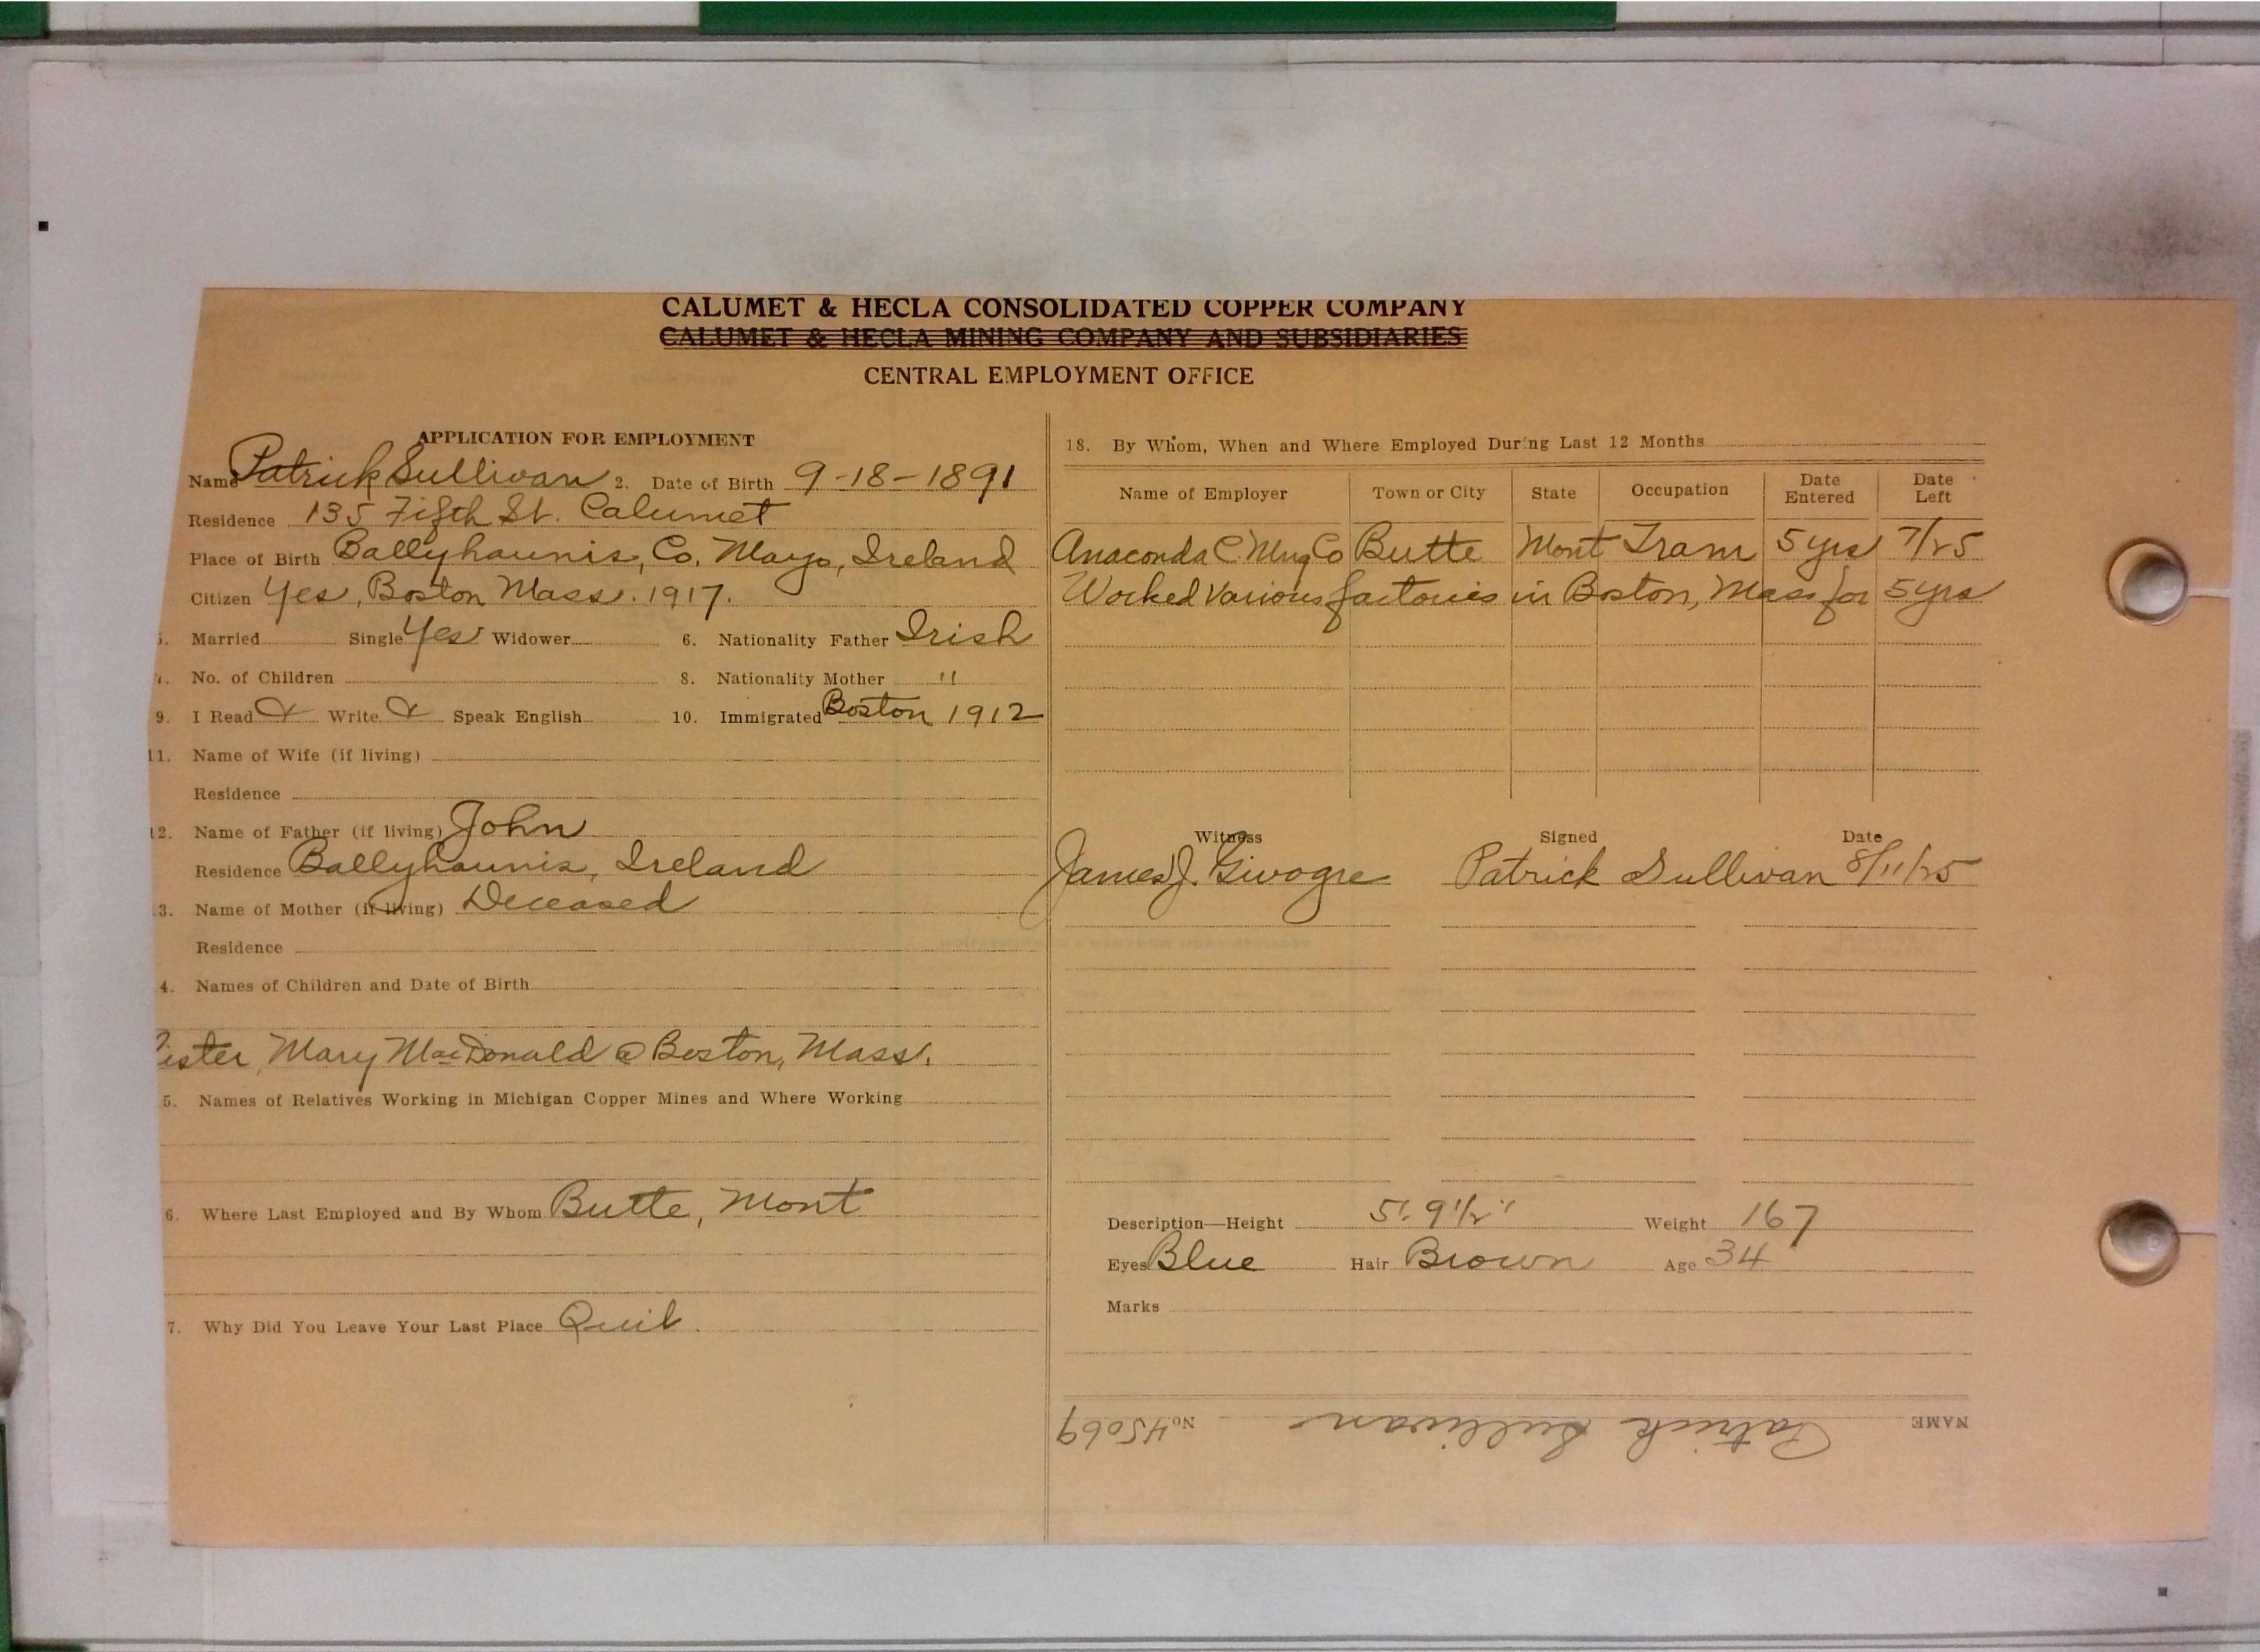 CALUMET & HECLA CONSOLIDATED COPPER COMPANY
CALUMET & HECLA MINING COMPANY AND SUBSIDIARIES
CENTRAL EMPLOYMENT OFFICE
APPLICATION FOR EMPLOYMENT
Name Patrick Sullivan 2. Date of Birth 9-18-1891
Residence 135 Fifth St. Calumet
Place of Birth Ballyhaunis, Co. Mayo, Ireland
Citizen Yes, Boston Mass. 1917.
5. Married Single Yes Widower 6. Nationality Father Irish
7. No. of Children 8. Nationality Mother "
9. I Read Write Speak English 10. Immigrated Boston 1912
11. Name of Wife (if living)
Residence
12. Name of Father (if living) John
Residence Ballyhaunis, Ireland
3. Name of Mother (if living) Deceased
Residence
4. Names of Children and Date of Birth
Sister, Mary MacDonald @ Boston, Mass.
5. Names of Relatives Working in Michigan Copper Mines and Where Working
6. Where Last Employed and By Whom Butte, Mont
7. Why Did You Leave Your Last Place Quit.
18. By Whom, When and Where Employed During Last 12 Months
Name of Employer Town or City State Occupation Date Entered Date Left
Anaconda C. Mng Co Butte Mont Tram 5 yrs 7/25
Worked Various factories in Boston, Mass for 5 yrs
Witness Signed Date
James J. Patrick Sullivan 8/11/25
Description—Height 5' 9 1/2" Weight 167
Eyes Blue Hair Brown Age 34
Marks
NAME Patrick Sullivan No. 45069